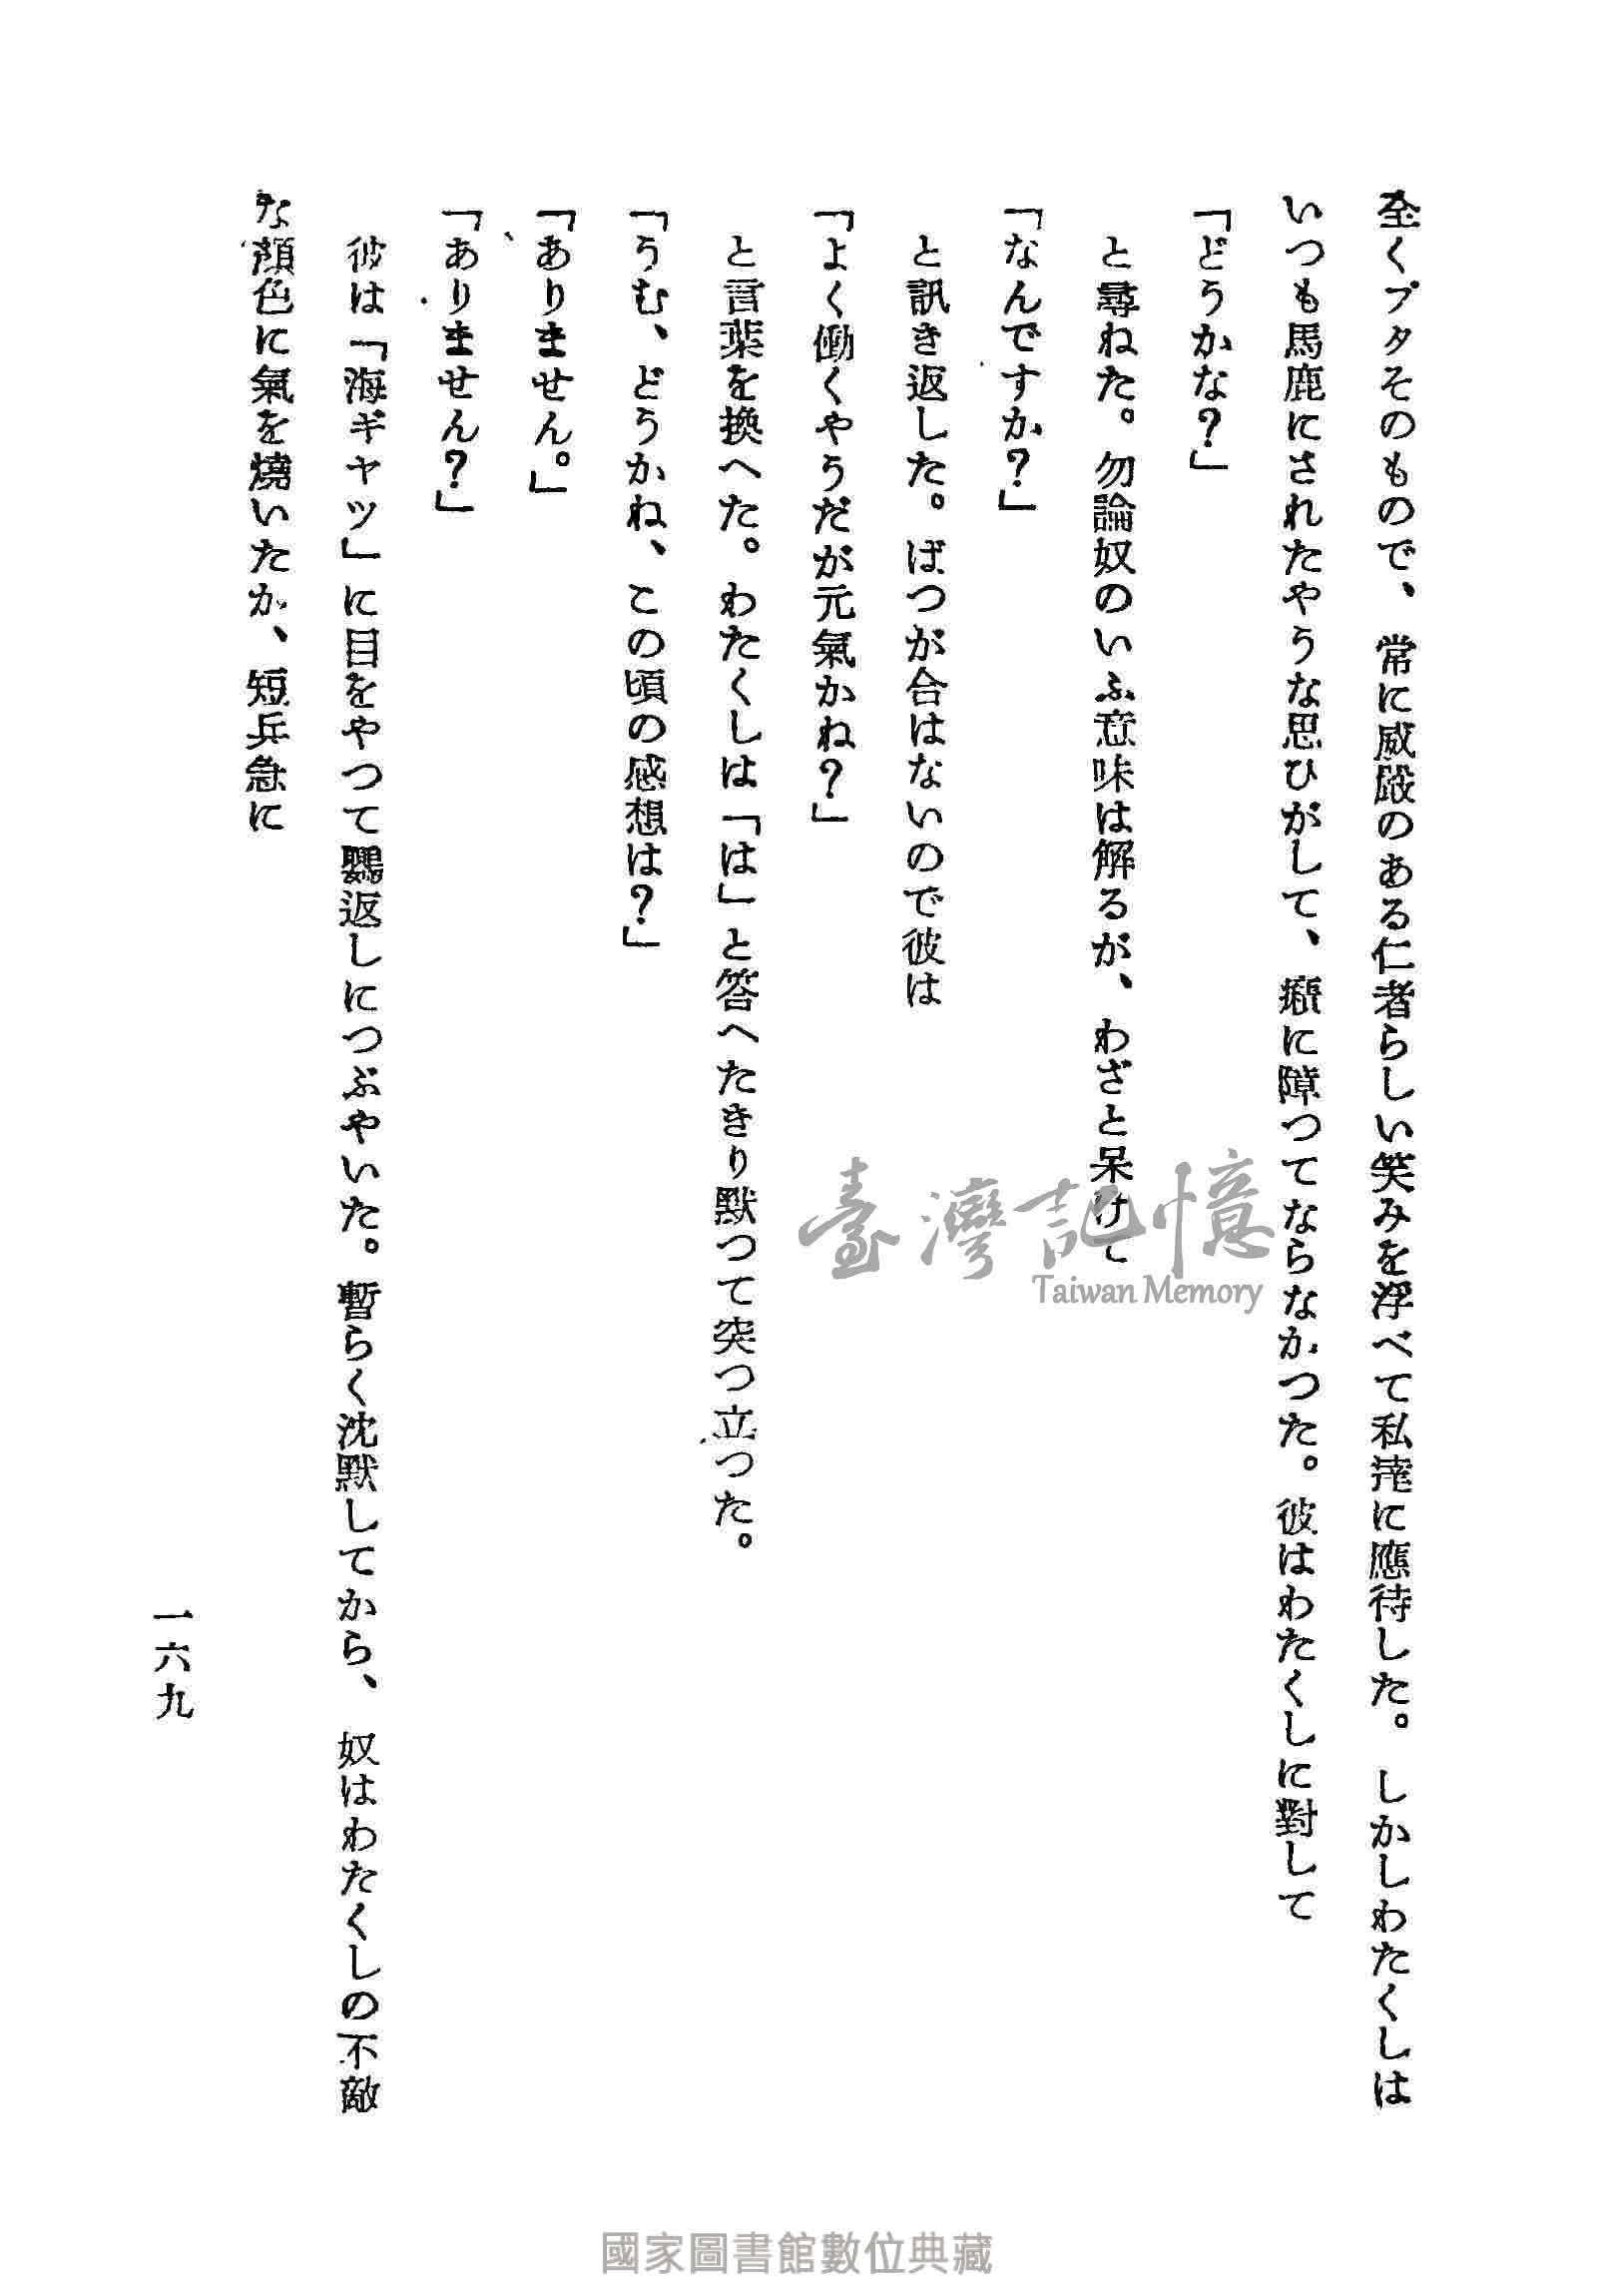 全くブタそのもので、常に威嚴のある仁者らしい笑みを浮べて私達に應待した。しかしわたくしは
いつも馬鹿にされたやうな思ひがして、癪に障つてならなかつた。彼はわたくしに對して
「どうかな？」
と尋ねた。勿論奴のいふ意味は解るが、わざと呆けて
「なんですか？」
と訊き返した。ばつが合はないので彼は
「よく働くやうだが元氣かね？」
と言葉を換へた。わたくしは「は」と答へたきり默つて突つ立つた。
「うむ、どうかね、この頃の感想は？」
「ありません。」
「ありません？」
彼は「海ギャツ」に目をやつて鸚返しにつぶやいた。暫らく沈默してから、奴はわたくしの不敵
な顏色に氣を燒いたか、短兵急に
一六九
臺灣記憶
Taiwan Memory
國家圖書館數位典藏